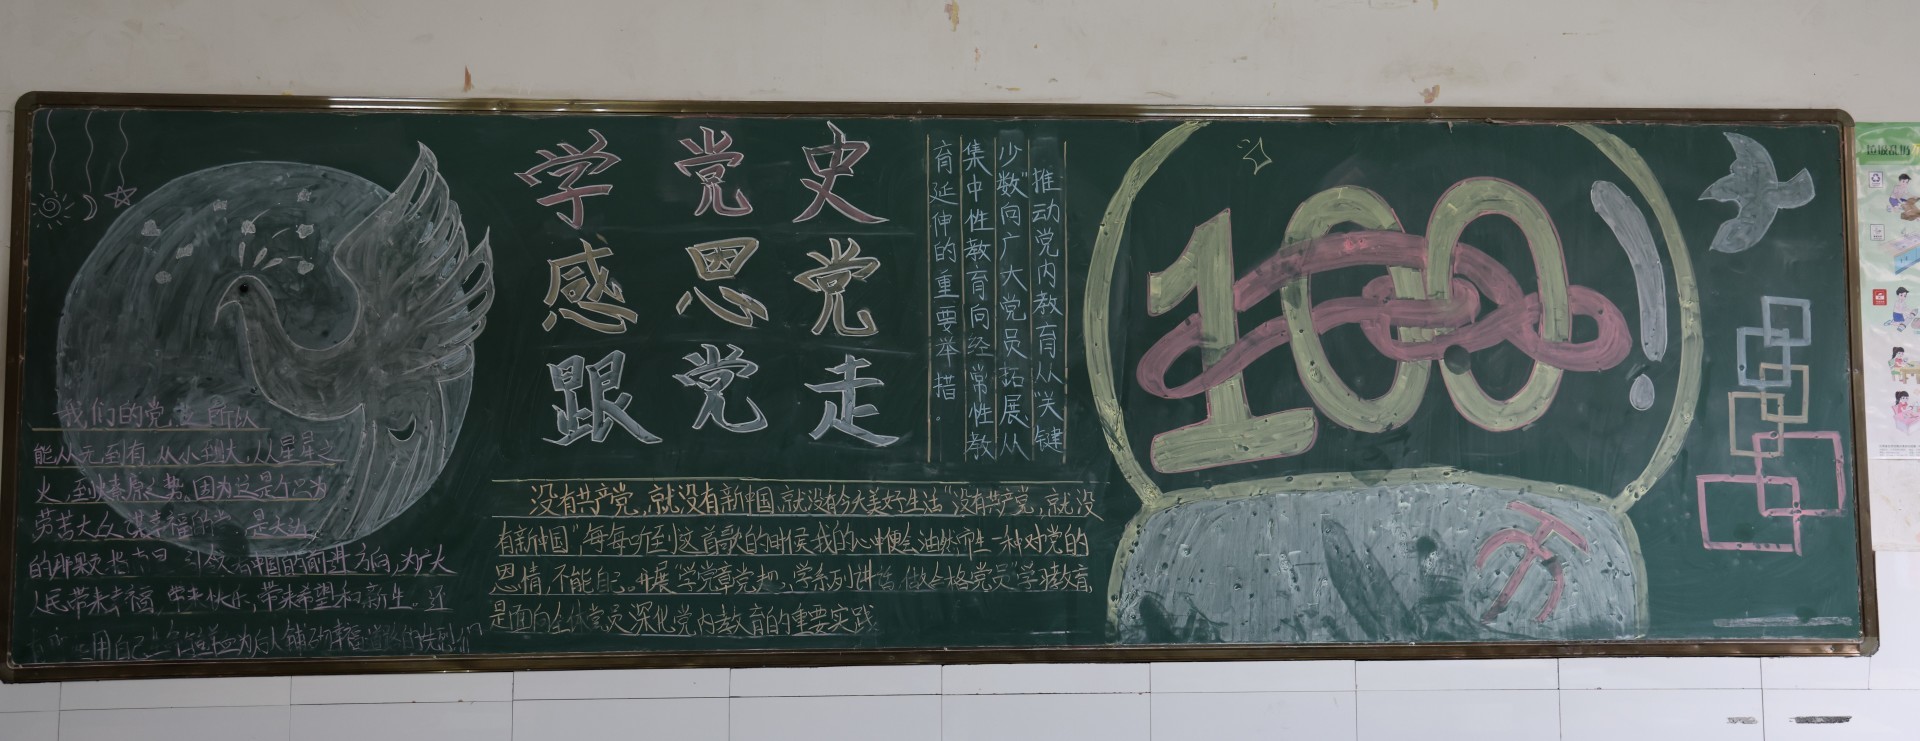 学党史
感党恩
跟党走
推动党内教育从“关键
少数”向广大党员拓展从
集中性教育向经常性教
育延伸的重要举措。
我们的党,之所以
能从无到有,从小到大,从星星之
火,到燎原之势。因为这是个以为
劳苦大众谋幸福的党。是太阳
的那颗
着中国的前进方向,为广大
人民带来幸福,带来快乐,带来希望和新生。还
用自己
没有共产党,就没有新中国,就没有今天美好生活“没有共产党,就没
有新中国”,每每听到这首歌的时候我的心中便会油然而生一种对党的
恩情,不能自已。开展“学党章党规、学系列讲话,做合格党员”学习教育,
是面向全体党员深化党内教育的重要实践
100